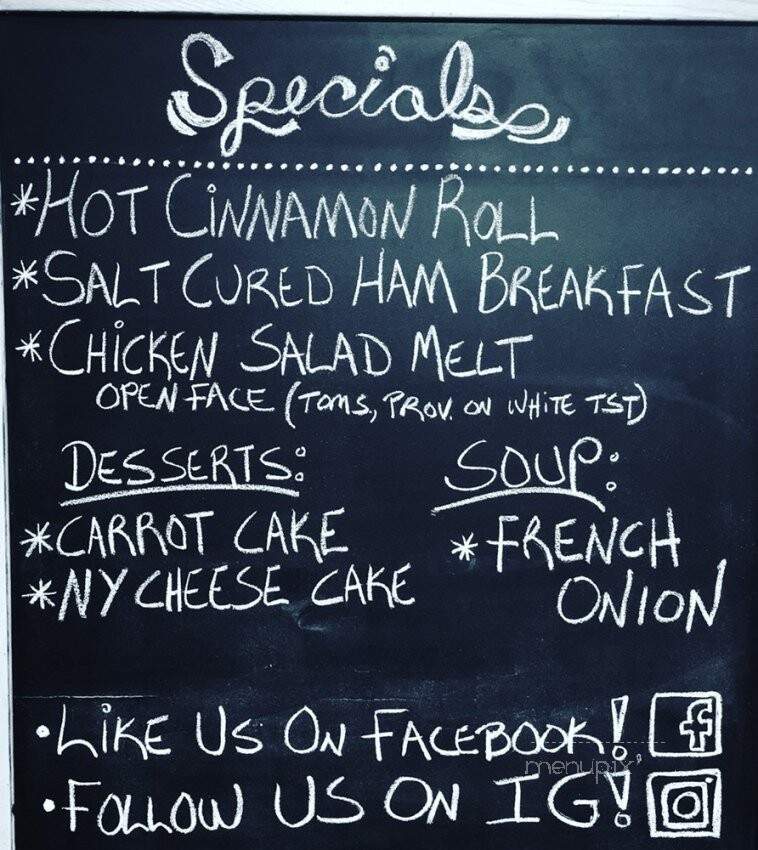 Specials
*HOT CINNAMON ROLL
*SALT CURED HAM BREAKFAST
*CHICKEN SALAD MELT
OPEN FACE (TOMS, PROV. ON WHITE TST)
DESSERTS:
*CARROT CAKE
*NY CHEESE CAKE
SOUP:
*FRENCH
ONION
•LIKE US ON FACEBOOK! f
menupix
•FOLLOW US ON IG!